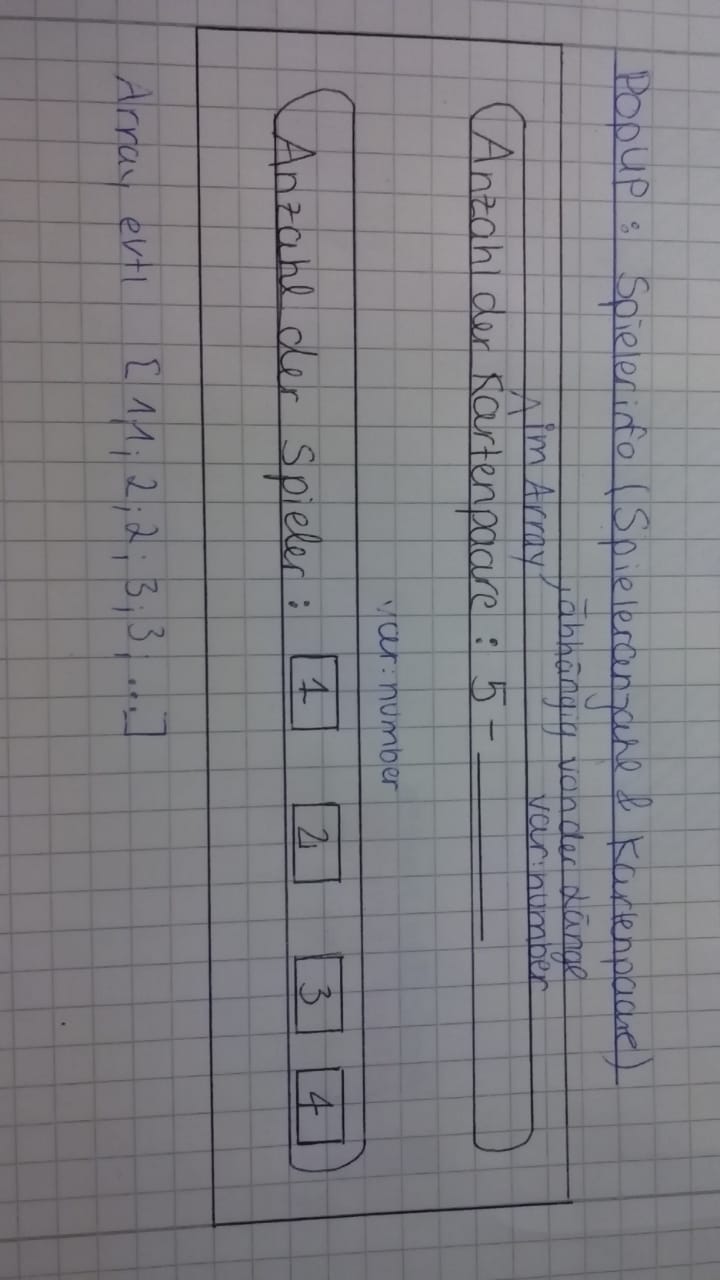 PopUP: Spielerinfo (Spieleranzahl & Kartenpaare)
, abhängig von der Länge
im Array
var:number
Anzahl der Kartenpaare: 5 - ______
var:number
Anzahl der Spieler: 1 2 3 4
Array evtl [1,1; 2;2; 3;3; ...]